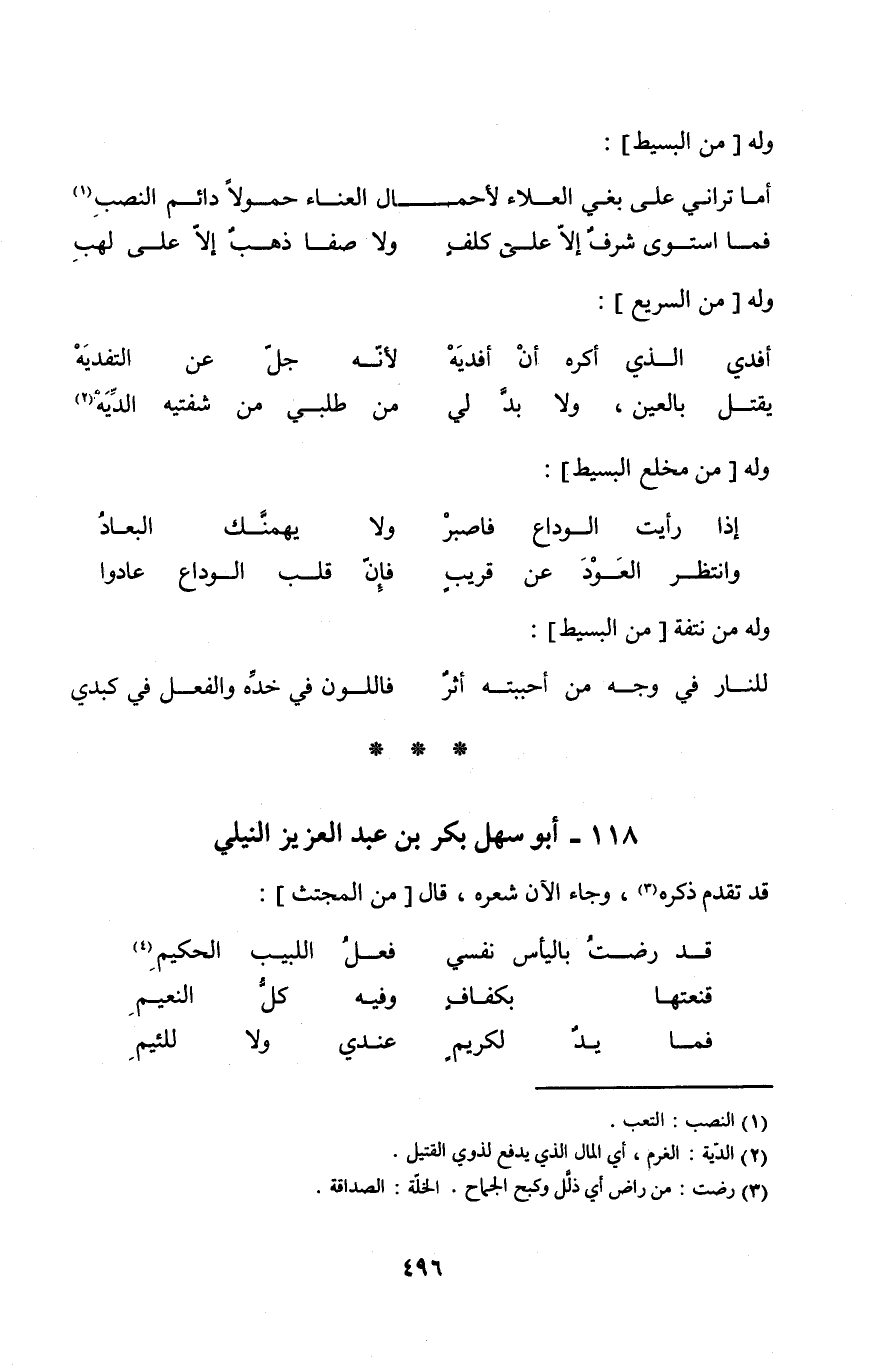 وله [ من البسيط ] :
أما تراني على بغي العلاء لأحمـال العناء حمولاً دائم النصبِ(١)
فما استوى شرفٌ إلاّ على كلفٍ ولا صفا ذهبٌ إلاّ على لهبِ
وله [ من السريع ] :
أفدي الذي أكره أنْ أفديَهْ لأنّه جلّ عن التفديَهْ
يقتل بالعين ، ولا بدَّ لي من طلبي من شفتيه الدِّيَهْ(٢)
وله [ من مخلع البسيط ] :
إذا رأيت الوداع فاصبرْ ولا يهمنَّك البعادُ
وانتظر العَوْدَ عن قريبٍ فإنّ قلب الوداع عادوا
وله من نتفة [ من البسيط ] :
للنار في وجه من أحببته أثرٌ فاللون في خدِّه والفعل في كبدي
* * *
١١٨ - أبو سهل بكر بن عبد العزيز النيلي
قد تقدم ذكره(٣) ، وجاء الآن شعره ، قال [ من المجتث ] :
قد رضتُ باليأس نفسي فعلُ اللبيب الحكيمِ(٤)
قنعتها بكفافٍ وفيه كلُّ النعيمِ
فما يدٌ لكريمٍ عندي ولا للئيمِ
(١) النصب : التعب .
(٢) الدّية : الغرم ، أي المال الذي يدفع لذوي القتيل .
(٣) رضت : من راض أي ذلَّل وكبح الجماح . الخلّة : الصداقة .
٤٩٦